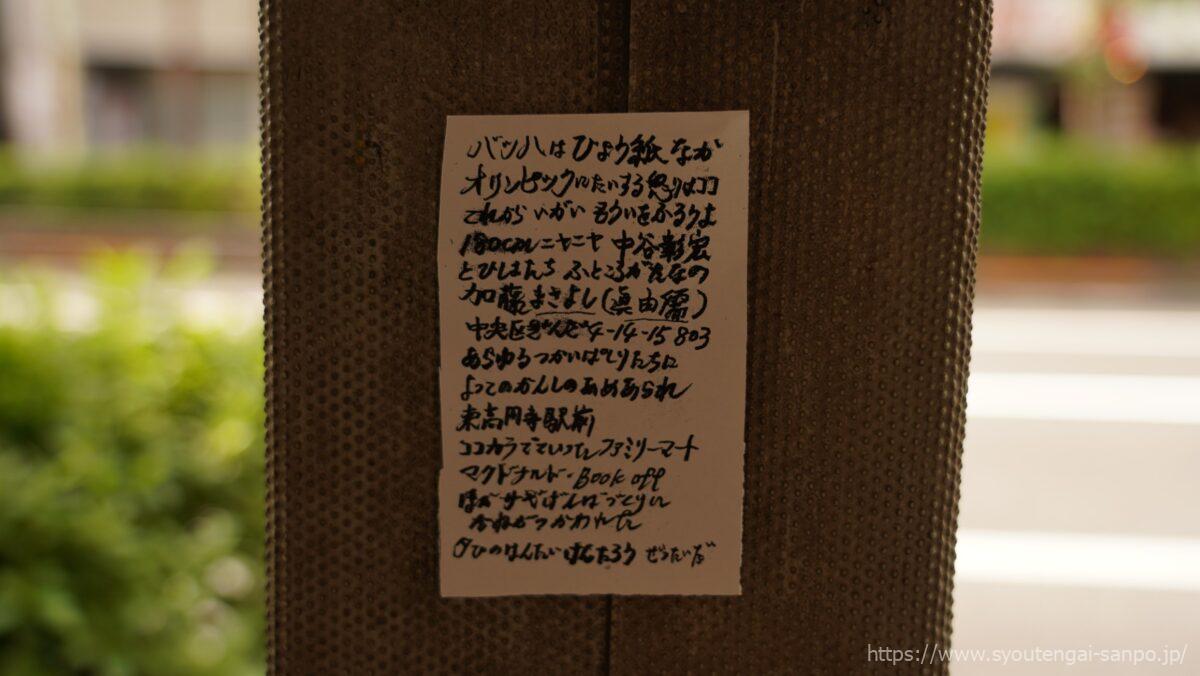 バッハはひょう紙なが
オリンピックにたいする怒りはココ
これから いがい もういをふるうよ
180cmニヤニヤ 中谷彰宏
とひしまたち ふところがたなの
加藤まさよし(眞由儒)
中央区ぎんざ4-14-15 803
あらゆるつかいぱしりたちに
よってのかんしのあめあられ
東高円寺駅前
ココカラでていったファミリーマート
マクドナルド・Book off
ほか
かねがつかわれた
はんたい ぜったいだ
https://www.syoutengai-sanpo.jp/